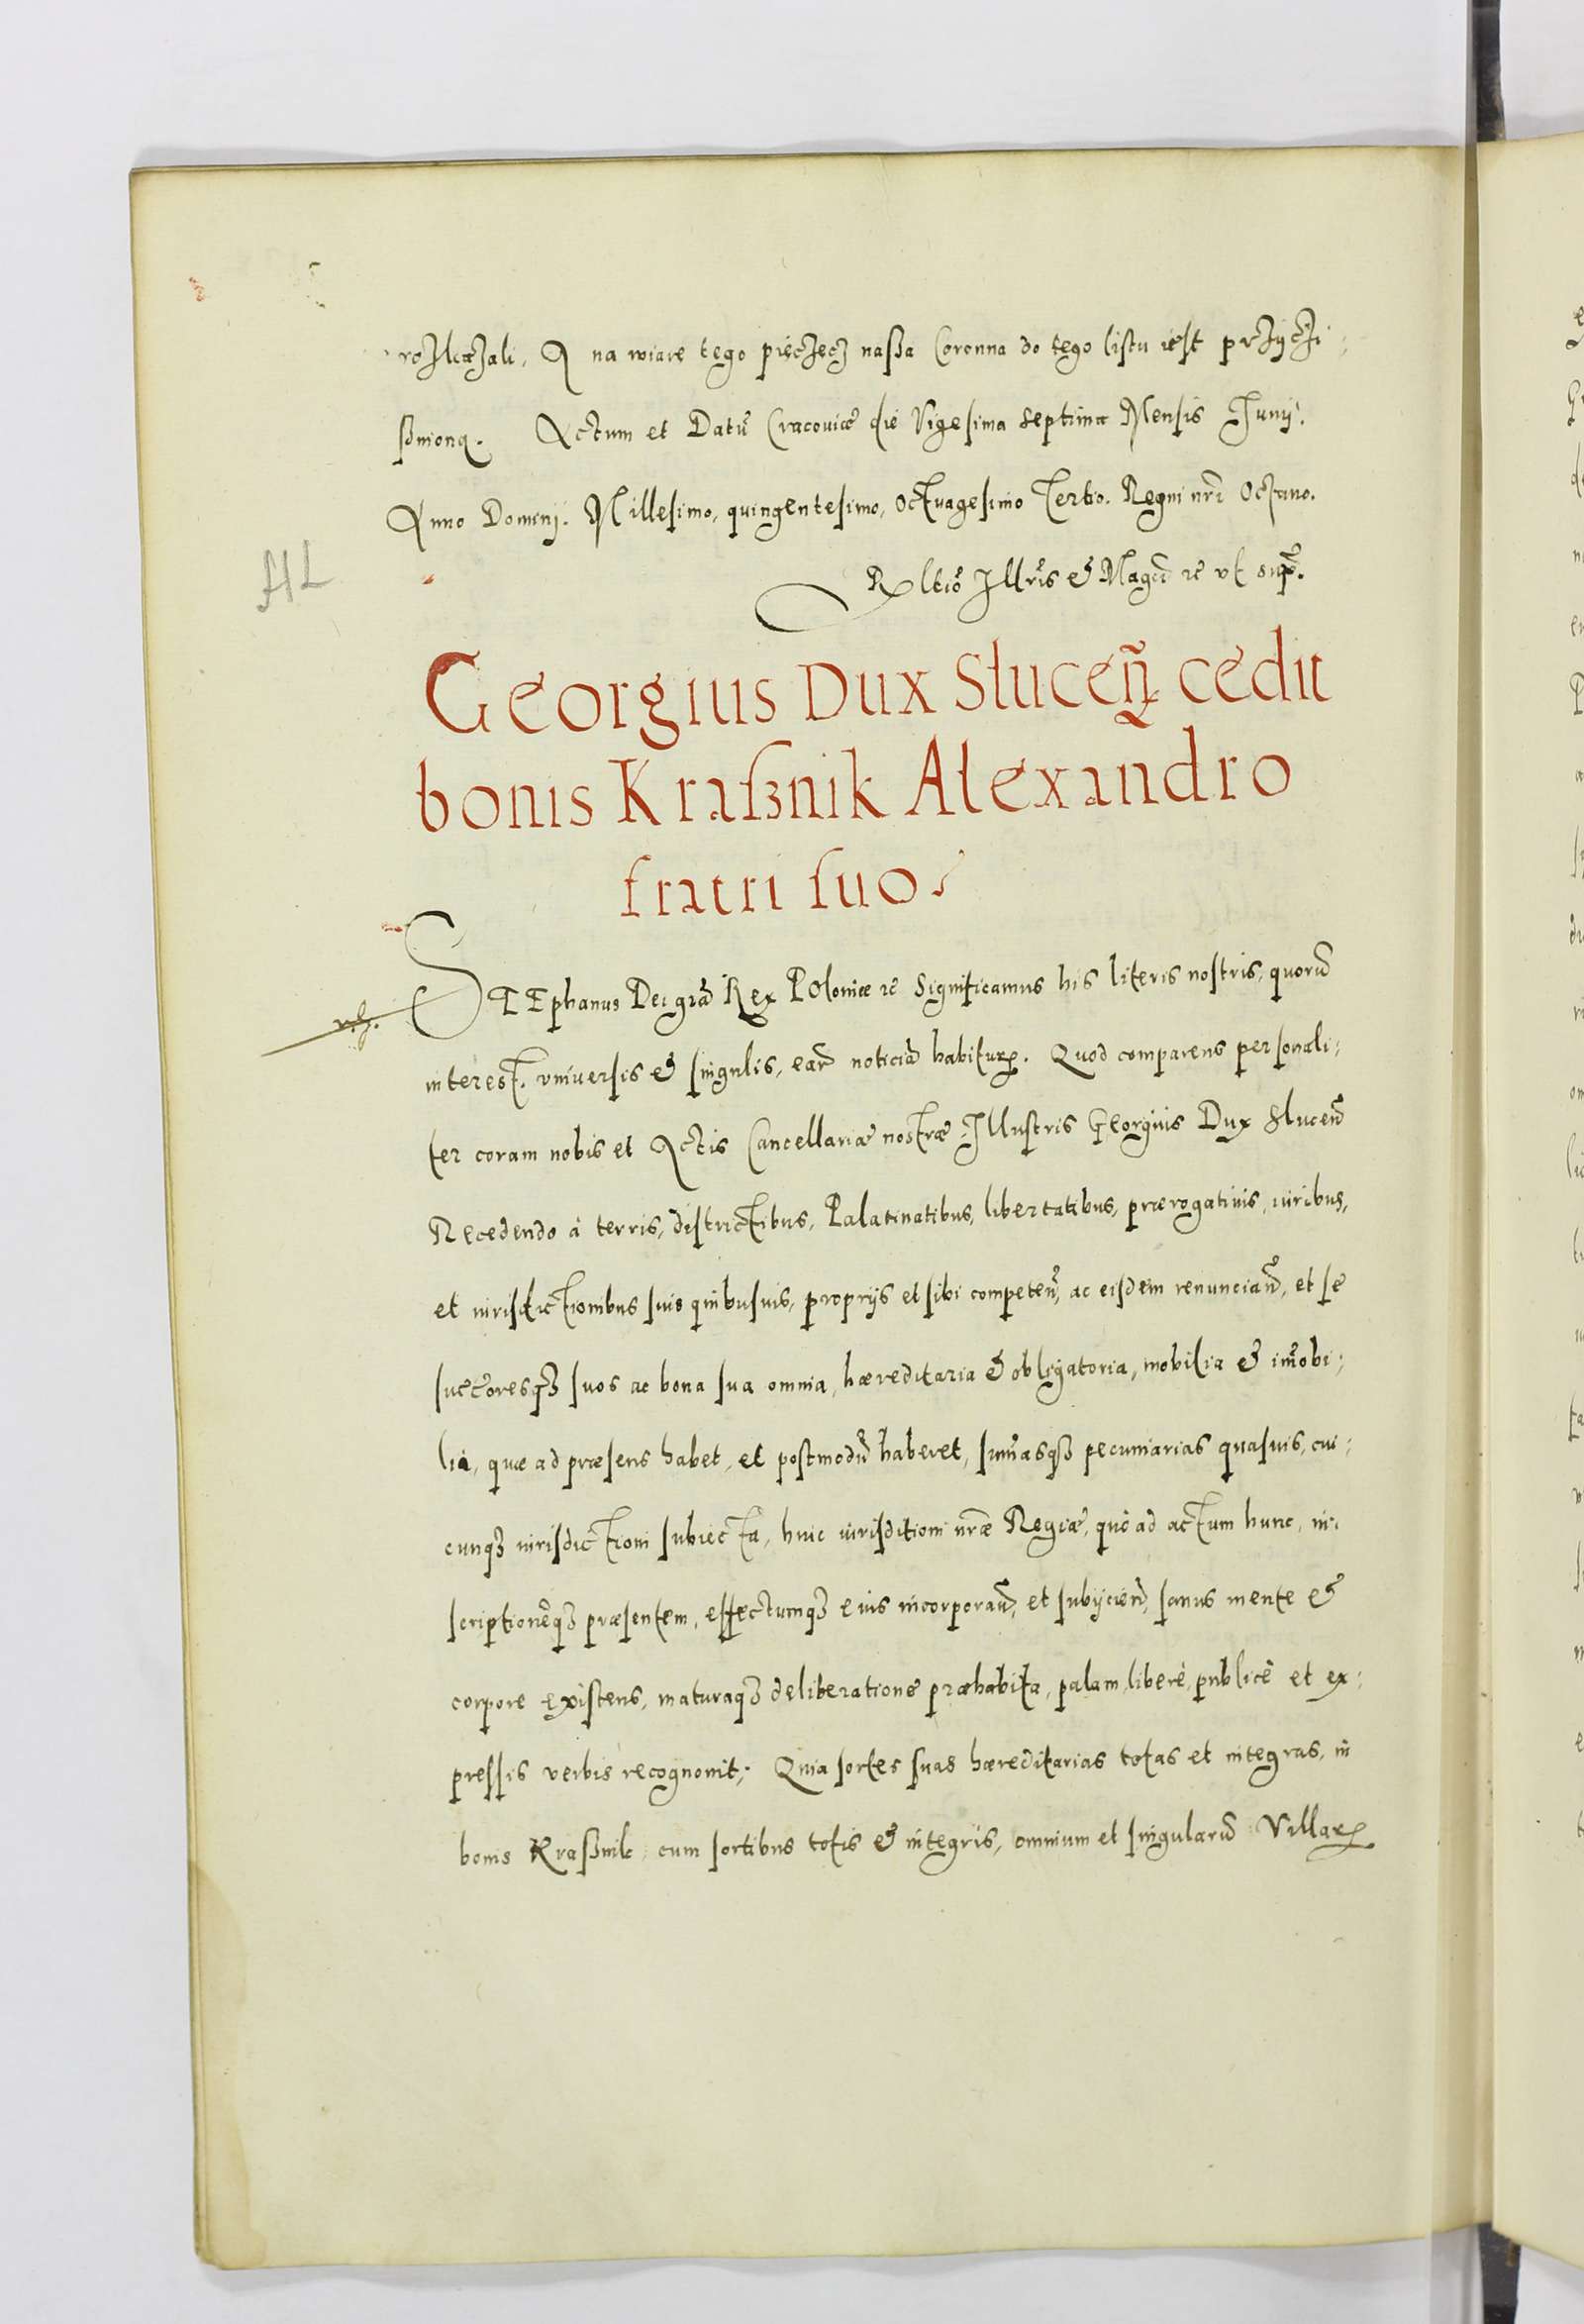 rozkazali, A na wiare tego pięczęcz nassa Coronna do tego listu iest przycżi;
sniona. Actum et Datū Cracoviæ die Vigesima septima Mensis Junÿ.
Anno Domini. Millesimo, quingentesimo, Octuagesimo Tertio. Regni nrī Octavo.
Rltio Illris et Magci rc vt supᷓ.
HL
Georgius Dux Slucen̄ cedit
bonis Kraßnik Alexandro
fratri suo.
STEphanus Dei grā Rex Poloniæ rc Significamus his literis nostris, quorū
interest. vniversis et singulis, earū noticiā habituꝝ. Quod comparens personali;
ter coram nobis et Actis Cancellariæ nostræ Illustris Georgius Dux Slucen̄
Recedendo à terris, districtibus, Palatinatibus, libertatibus, prærogativis, iuribus,
et iurisdictionibus suis quibusuis, proprÿs et sibi competen̄, ac eisdem renuncian̄, et se
succoresqȝ suos ac bona sua omnia, hæreditaria et obligatoria, mobilia et im̄obi;
lia, quæ ad præsens habet, et postmodū haberet, sum̄asqȝ pecuniarias quasuis, cui;
cunqȝ iurisdictioni subiecta, huic iurisditioni nræ Regiæ, quò ad actum hunc, in;
scriptionēqȝ præsentem, effectumqȝ eius incorporan̄, et subÿcien̄, sanus mente et
corpore existens, maturaqȝ deliberatione præhabita, palam, liberè, publicè et ex;
pressis verbis recognovit; Quia sortes suas hæreditarias totas et integras, in
bonis Kraßnik cum sortibus totis et integris, omnium et singularū Villaꝝ